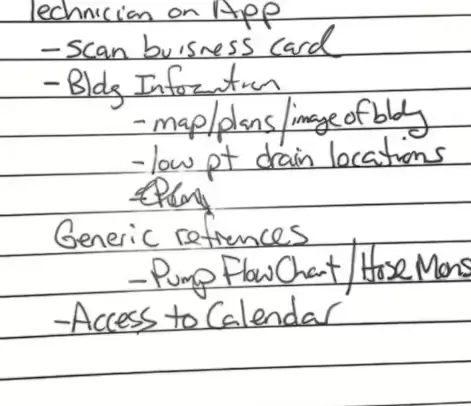 Technician on App
- Scan buisness card
- Bldg Information
- map/plans/image of bldg
- low pt drain locations
Generic refrences
- Pump Flow Chart / Hose Mons
- Access to Calendar